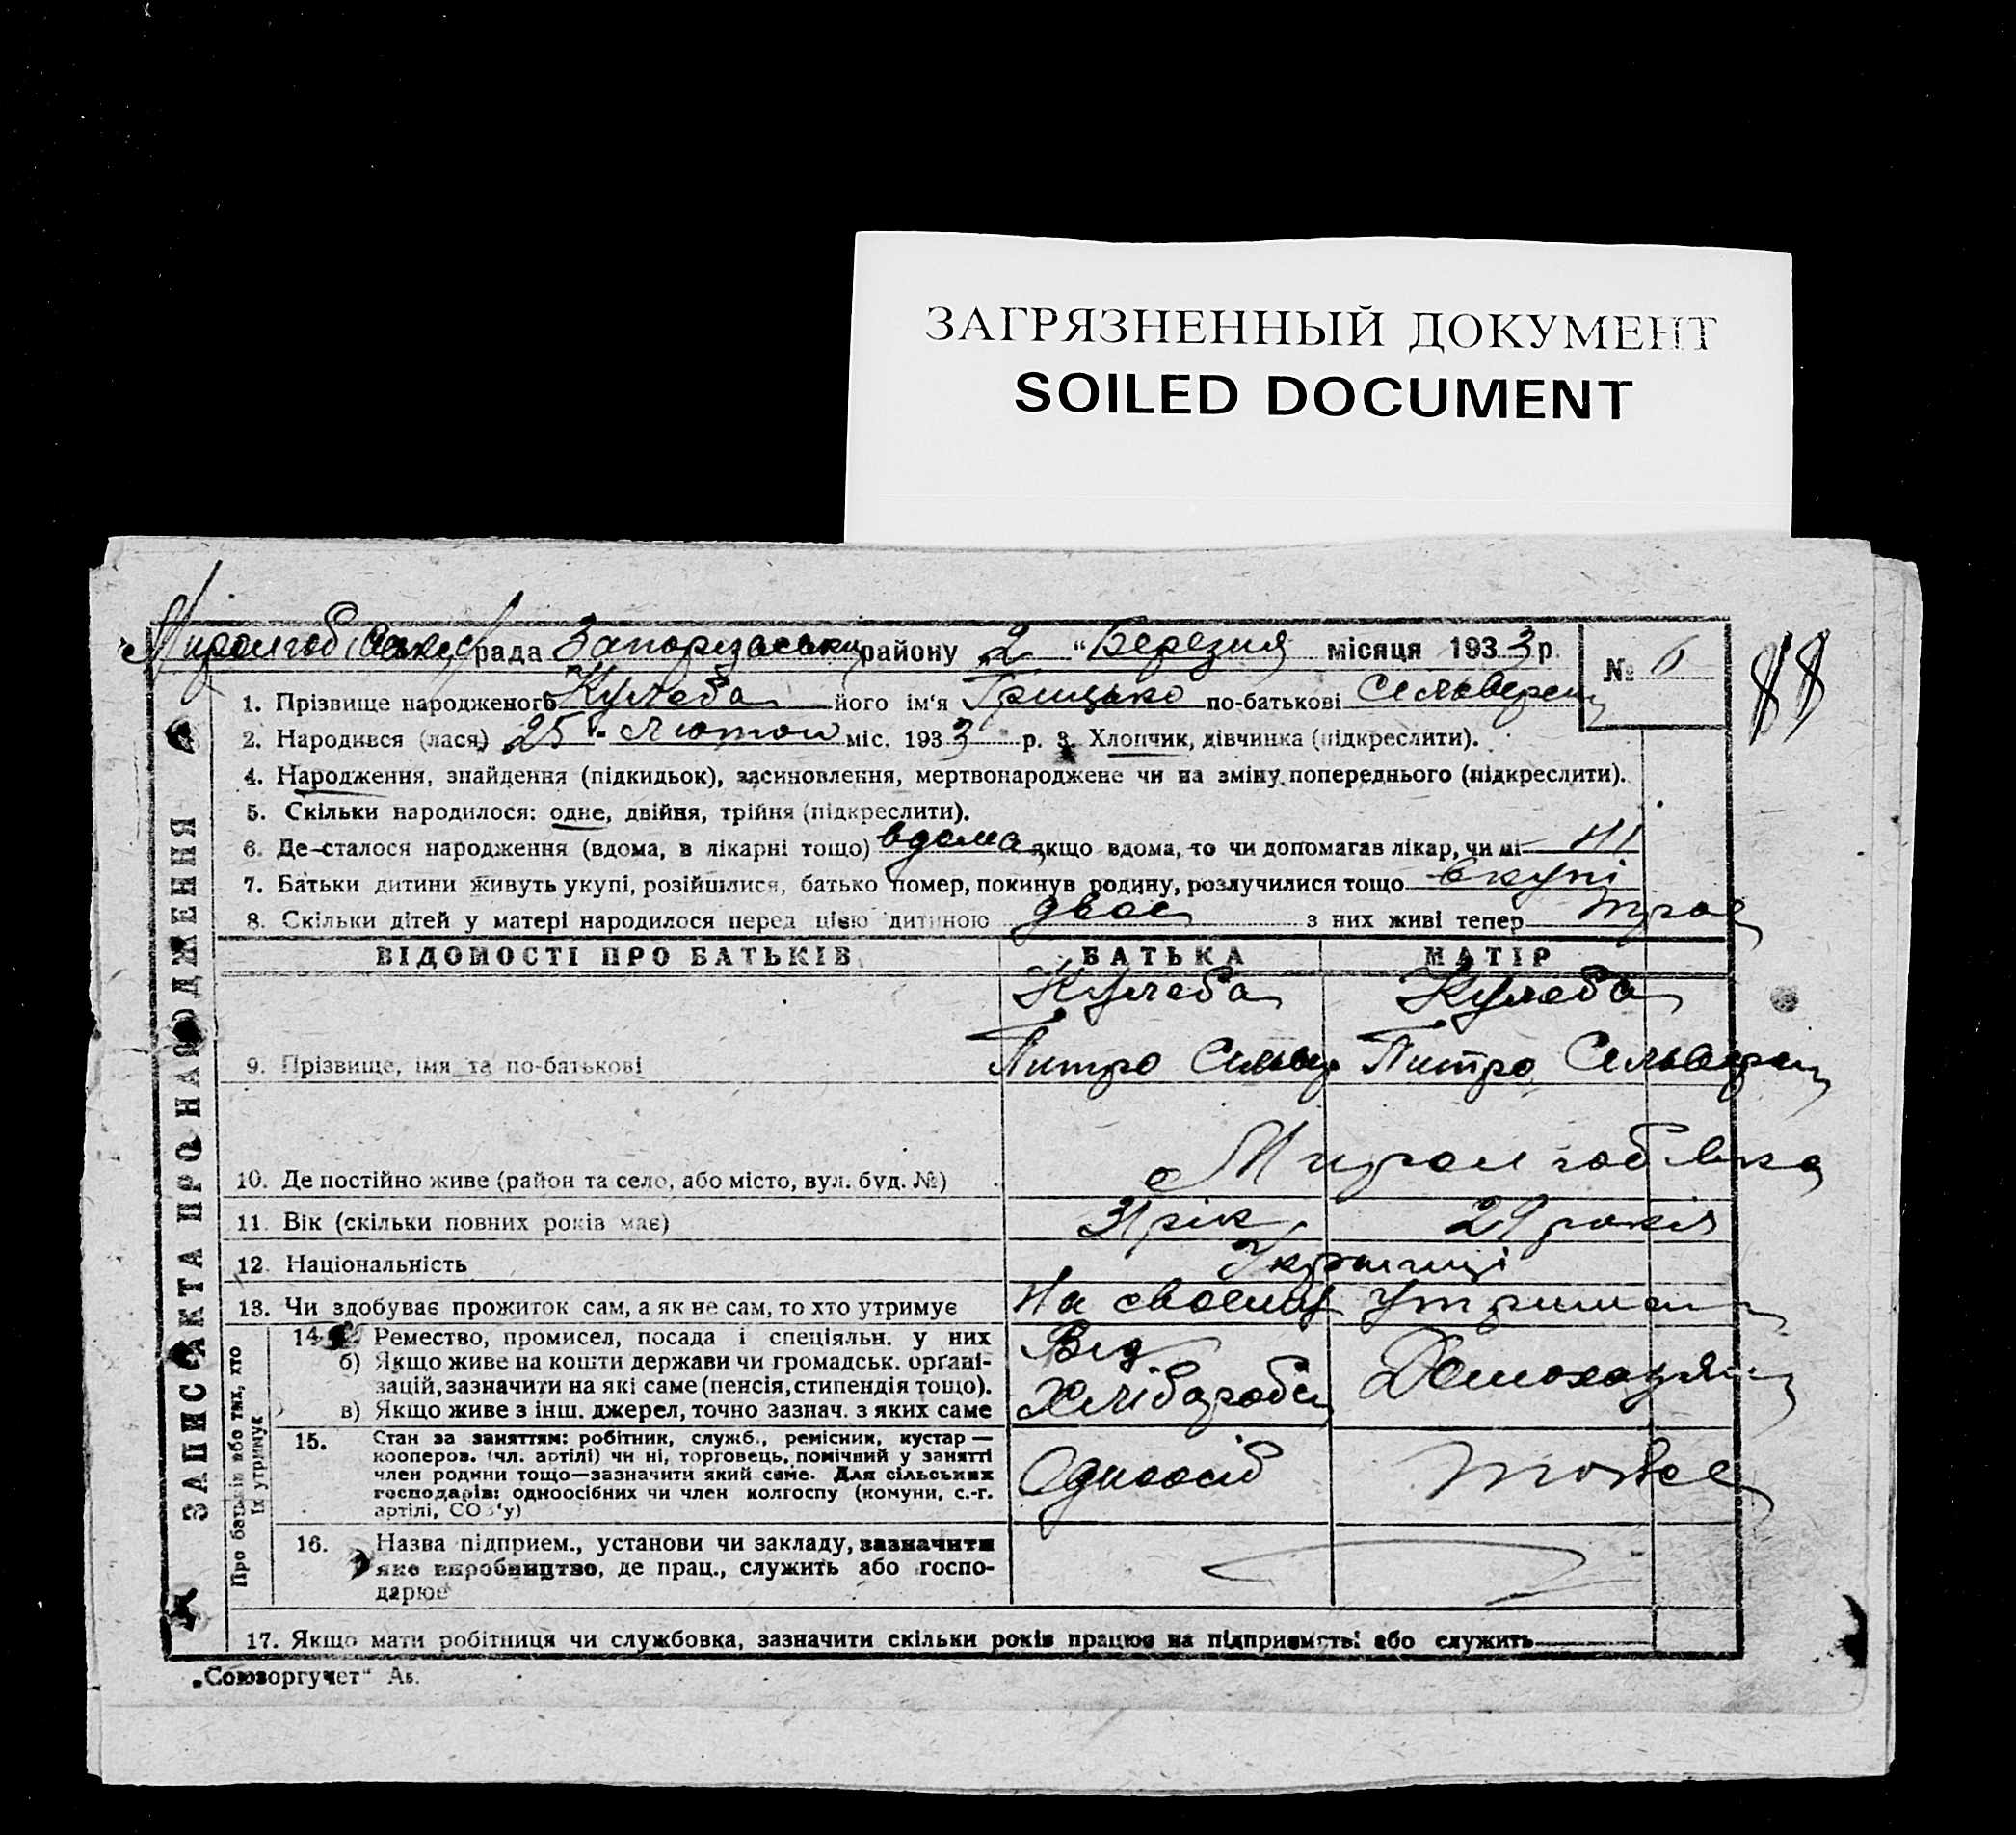 ЗАГРЯЗНЕННЫЙ ДОКУМЕНТ
SOILED DOCUMENT
рада району 2 "Березня місяця 1933 р. № 6
88
1. Прізвище народженого Кулеба його ім'я Грицько по-батькові
2. Народився (лася) 25 " Лютого міс. 1933 р. 3. Хлопчик, дівчинка (підкреслити).
4. Народження, знайдення (підкидьок), засиновлення, мертвонароджене чи на зміну попереднього (підкреслити).
5. Скільки народилося: одне, двійня, трійня (підкреслити).
6. Де сталося народження (вдома, в лікарні тощо) вдома якщо вдома, то чи допомагав лікар, чи ні ні
7. Батьки дитини живуть укупі, розійшлися, батько помер, покинув родину, розлучилися тощо вкупі
8. Скільки дітей у матері народилося перед цією дитиною двоє з них живі тепер троє
ВІДОМОСТІ ПРО БАТЬКІВ БАТЬКА МАТІР
Кулеба Кулеба
9. Прізвище, імя та по-батькові
10. Де постійно живе (район та село, або місто, вул. буд. №)
11. Вік (скільки повних років має) 31 рік 29 років
12. Національність Українці
13. Чи здобуває прожиток сам, а як не сам, то хто утримує На своєму
14. Ремество, промисел, посада і спеціяльн. у них Від
б) Якщо живе на кошти держави чи громадськ. орґані-
зацій, зазначити на які саме (пенсія, стипендія тощо).
в) Якщо живе з інш. джерел, точно зазнач. з яких саме
15. Стан за заняттям: робітник, служб., ремісник, кустар —
кооперов. (чл. артілі) чи ні, торговець, помічний у занятті
член родини тощо—зазначити який саме. Для сільських
господарів: одноосібних чи член колгоспу (комуни, с.-г.
артілі, СОЗ'у)
Одноосіб тоже
16. Назва підприєм., установи чи закладу, зазначити
яке виробництво, де прац., служить або госпо-
дарює
17. Якщо мати робітниця чи службовка, зазначити скільки років працює на підприємстві або служить
Про батьків або тих, хто
їх утримує
ЗАПИС АКТА ПРО НАРОДЖЕННЯ
„Союзоргучет“